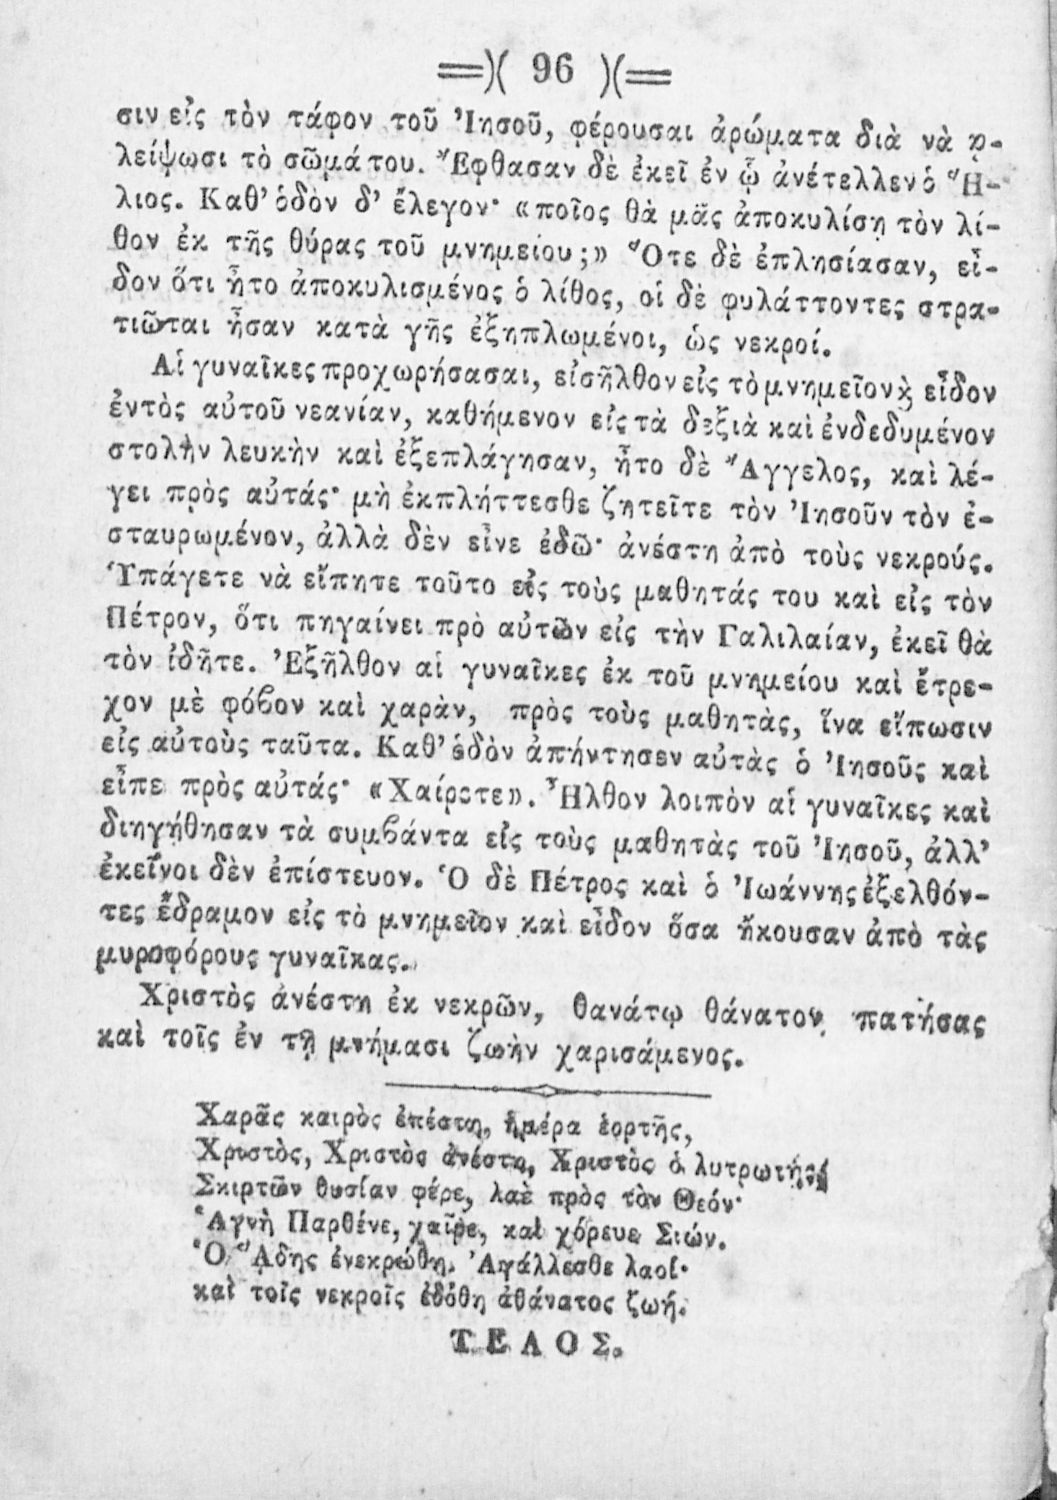 =)( 96 )(=
σιν εἰς τὸν τάφον τοῦ Ἰησοῦ, φέρουσαι ἀρώματα διὰ νὰ ἀ-
λείψωσι τὸ σῶμά του. Ἔφθασαν δὲ ἐκεῖ ἐν ᾧ ἀνέτελλεν ὁ Ἥ-
λιος. Καθ’ ὁδὸν δ’ ἔλεγον· «ποῖος θὰ μᾶς ἀποκυλίσῃ τὸν λί-
θον ἐκ τῆς θύρας τοῦ μνημείου;» Ὅτε δὲ ἐπλησίασαν, εἶ-
δον ὅτι ἦτο ἀποκυλισμένος ὁ λίθος, οἱ δὲ φυλάττοντες στρα-
τιῶται ἦσαν κατὰ γῆς ἐξηπλωμένοι, ὡς νεκροί.
Αἱ γυναῖκες προχωρήσασαι, εἰσῆλθον εἰς τὸ μνημεῖον ϗ̀ εἶδον
ἐντὸς αὐτοῦ νεανίαν, καθήμενον εἰς τὰ δεξιὰ καὶ ἐνδεδυμένον
στολὴν λευκὴν καὶ ἐξεπλάγησαν, ἦτο δὲ Ἄγγελος, καὶ λέ-
γει πρὸς αὐτάς· μὴ ἐκπλήττεσθε ζητεῖτε τὸν Ἰησοῦν τὸν ἐ-
σταυρωμένον, ἀλλὰ δὲν εἶνε ἐδῶ· ἀνέστη ἀπὸ τοὺς νεκρούς.
Ὑπάγετε νὰ εἴπητε τοῦτο εἰς τοὺς μαθητάς του καὶ εἰς τὸν
Πέτρον, ὅτι πηγαίνει πρὸ αὐτῶν εἰς τὴν Γαλιλαίαν, ἐκεῖ θὰ
τὸν ἰδῆτε. Ἐξῆλθον αἱ γυναῖκες ἐκ τοῦ μνημείου καὶ ἔτρε-
χον μὲ φόϐον καὶ χαρὰν, πρὸς τοὺς μαθητὰς, ἵνα εἴπωσιν
εἰς αὐτοὺς ταῦτα. Καθ’ ὁδὸν ἀπήντησεν αὐτὰς ὁ Ἰησοῦς καὶ
εἶπε πρὸς αὐτάς· «Χαίρετε». Ἦλθον λοιπὸν αἱ γυναῖκες καὶ
διηγήθησαν τὰ συμϐάντα εἰς τοὺς μαθητὰς τοῦ Ἰησοῦ, ἀλλ’
ἐκεῖνοι δὲν ἐπίστευον. Ὁ δὲ Πέτρος καὶ ὁ Ἰωάννης ἐξελθόν-
τες ἔδραμον εἰς τὸ μνημεῖον καὶ εἶδον ὅσα ἤκουσαν ἀπὸ τὰς
μυροφόρους γυναῖκας.
Χριστὸς ἀνέστη ἐκ νεκρῶν, θανάτῳ θάνατον πατήσας
καὶ τοῖς ἐν τῇ μνήμασι ζωὴν χαρισάμενος.
Χαρᾶς καιρὸς ἐπέστη, ἡμέρα ἑορτῆς,
Χριστὸς, Χριστὸς ἀνέστη, Χριστὸς ὁ λυτρωτής·
Σκιρτῶν θυσίαν φέρε, λαὲ πρὸς τὸν Θεόν·
Ἁγνὴ Παρθένε, χαῖρε, καὶ χόρευε Σιών.
Ὁ ᾍδης ἐνεκρώθη. Ἀγάλλεσθε λαοί·
καὶ τοῖς νεκροῖς ἐδόθη ἀθάνατος ζωή.
ΤΕΛΟΣ.